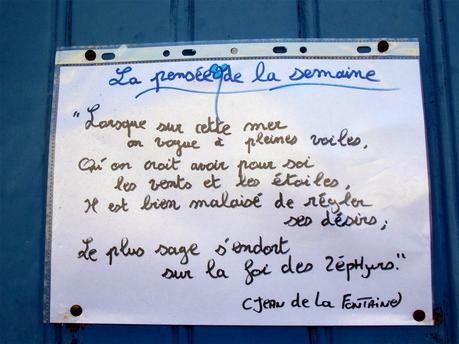 La pensée de la semaine
"Lorsque sur cette mer
on vogue à pleines voiles,
Qu'on croit avoir pour soi
les vents et les étoiles,
Il est bien malaisé de régler
ses désirs;
Le plus sage s'endort
sur la foi des Zéphyrs."
(Jean de La Fontaine)